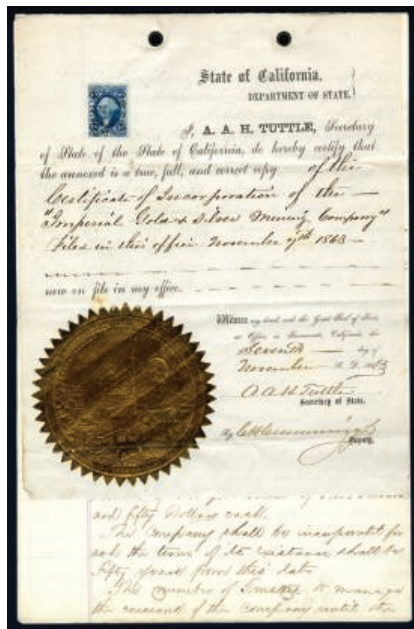 State of California,
DEPARTMENT OF STATE.
I, A. A. H. TUTTLE, Secretary
of State of the State of California, do hereby certify that
the annexed is a true, full, and correct copy of the
Certificate of Incorporation of the
"Imperial Gold & Silver Mining Company"
Filed in this office November 7th 1863
now on file in my office.
Witness my hand and the Great Seal of State,
at Office in Sacramento, California, the
Seventh day of
November A. D. 1863
A A H Tuttle
Secretary of State.
By
Deputy.
and fifty Dollars each.
The Company shall be incorporated for
and the term of its existance shall be
Fifty years from this date
The number of Trustees to manage
the concerns of the Company until the